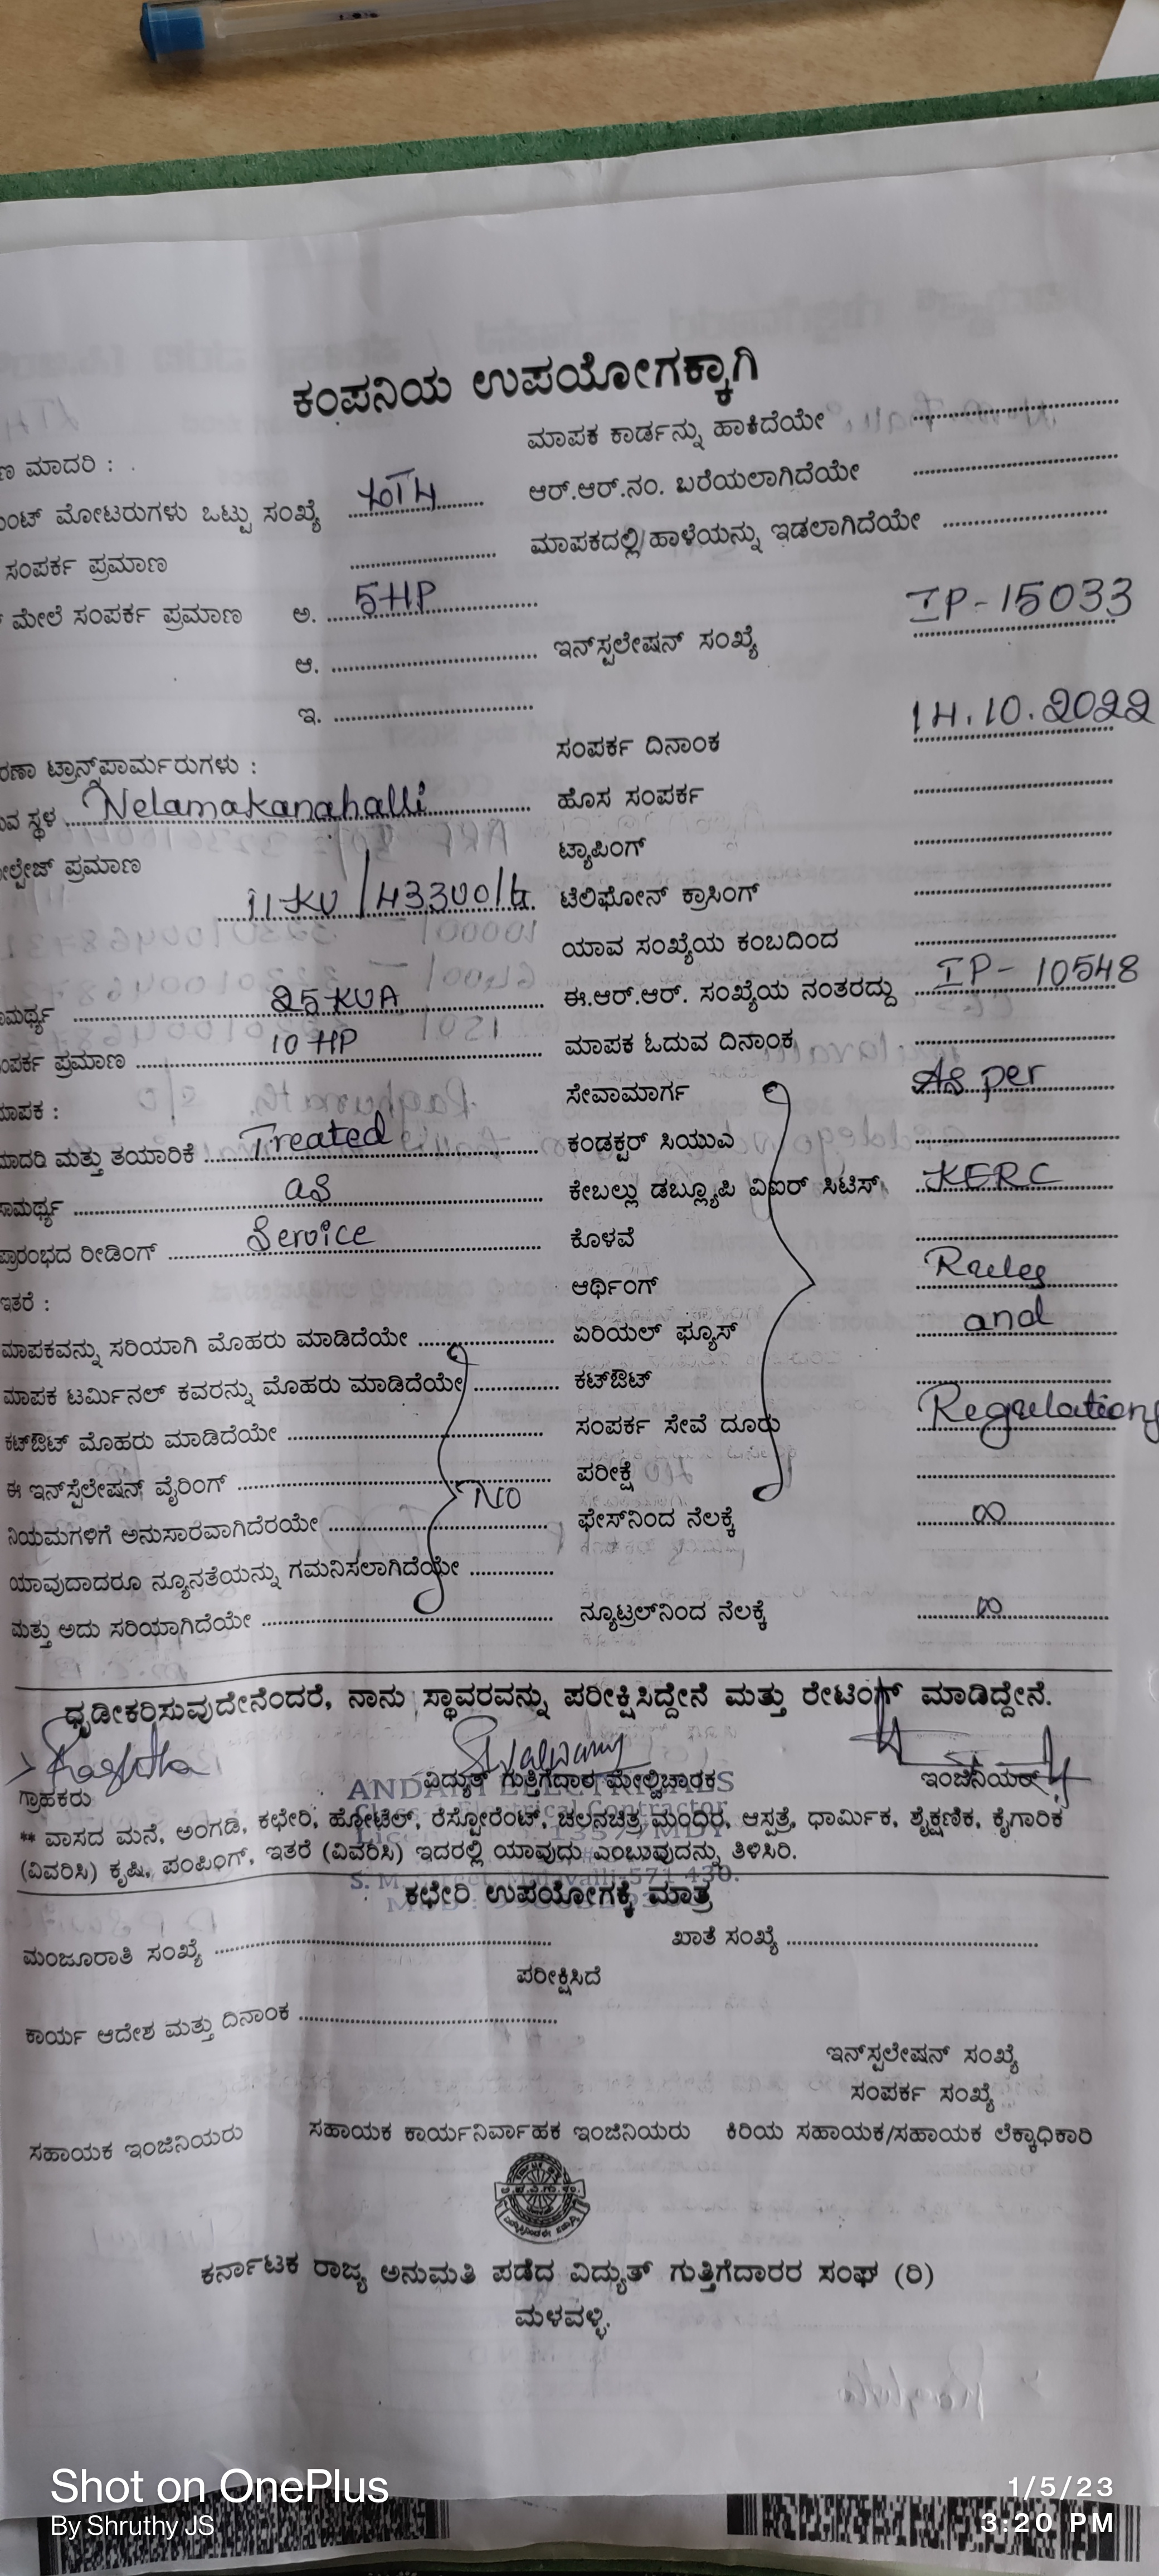 ಕಂಪನಿಯ ಉಪಯೋಗಕ್ಕಾಗಿ
ಮಾಪಕ ಕಾರ್ಡನ್ನು ಹಾಕಿದೆಯೇ
ಮಾದರಿ :
ಆರ್.ಆರ್.ನಂ. ಬರೆಯಲಾಗಿದೆಯೇ
ಮೋಟರುಗಳು ಒಟ್ಟು ಸಂಖ್ಯೆ
ಮಾಪಕದಲ್ಲಿ ಹಾಳೆಯನ್ನು ಇಡಲಾಗಿದೆಯೇ
ಸಂಪರ್ಕ ಪ್ರಮಾಣ
ಮೇಲೆ ಸಂಪರ್ಕ ಪ್ರಮಾಣ ಅ. 5HP
ಇನ್‌ಸ್ಪಲೇಷನ್ ಸಂಖ್ಯೆ IP-15033
ಆ.
ಇ.
ಸಂಪರ್ಕ ದಿನಾಂಕ 14.10.2022
ಟ್ರಾನ್ಸ್‌ಪಾರ್ಮರುಗಳು :
ಸ್ಥಳ Nelamakanahalli
ಹೊಸ ಸಂಪರ್ಕ
ಪ್ರಮಾಣ
ಟ್ಯಾಪಿಂಗ್
11 KV / 433
ಟೆಲಿಫೋನ್ ಕ್ರಾಸಿಂಗ್
ಯಾವ ಸಂಖ್ಯೆಯ ಕಂಬದಿಂದ
25 KVA
ಈ.ಆರ್.ಆರ್. ಸಂಖ್ಯೆಯ ನಂತರದ್ದು IP-10548
ಪ್ರಮಾಣ 10 HP
ಮಾಪಕ ಓದುವ ದಿನಾಂಕ
ಸೇವಾಮಾರ್ಗ As per
ಮತ್ತು ತಯಾರಿಕೆ Treated
ಕಂಡಕ್ಟರ್ ಸಿಯುವ
as
ಕೇಬಲ್ಲು ಡಬ್ಲ್ಯೂಪಿ ವಿಐರ್ ಸಿಟಿಸ್ KERC
ಪ್ರಾರಂಭದ ರೀಡಿಂಗ್ Service
ಕೊಳವೆ
ಇತರೆ :
ಆರ್ಥಿಂಗ್ Rules
ಮಾಪಕವನ್ನು ಸರಿಯಾಗಿ ಮೊಹರು ಮಾಡಿದೆಯೇ
ಏರಿಯಲ್ ಫ್ಯೂಸ್ and
ಮಾಪಕ ಟರ್ಮಿನಲ್ ಕವರನ್ನು ಮೊಹರು ಮಾಡಿದೆಯೇ
ಕಟ್‌ಔಟ್
ಕಟ್‌ಔಟ್ ಮೊಹರು ಮಾಡಿದೆಯೇ
ಸಂಪರ್ಕ ಸೇವೆ ದೂರು Regulations
ಈ ಇನ್‌ಸ್ಪೆಲೇಷನ್ ವೈರಿಂಗ್ NO
ಪರೀಕ್ಷೆ
ನಿಯಮಗಳಿಗೆ ಅನುಸಾರವಾಗಿದೆರಯೇ
ಫೇಸ್‌ನಿಂದ ನೆಲಕ್ಕೆ ∞
ಯಾವುದಾದರೂ ನ್ಯೂನತೆಯನ್ನು ಗಮನಿಸಲಾಗಿದೆಯೇ
ಮತ್ತು ಅದು ಸರಿಯಾಗಿದೆಯೇ
ನ್ಯೂಟ್ರಲ್‌ನಿಂದ ನೆಲಕ್ಕೆ ∞
ಧೃಡೀಕರಿಸುವುದೇನೆಂದರೆ, ನಾನು ಸ್ಥಾವರವನ್ನು ಪರೀಕ್ಷಿಸಿದ್ದೇನೆ ಮತ್ತು ರೇಟಿಂಗ್ ಮಾಡಿದ್ದೇನೆ.
ಗ್ರಾಹಕರು ವಿದ್ಯುತ್ ಗುತ್ತಿಗೆದಾರ ಮೇಲ್ವಿಚಾರಕ ಇಂಜಿನಿಯರ್
** ವಾಸದ ಮನೆ, ಅಂಗಡಿ, ಕಛೇರಿ, ಹೋಟೆಲ್, ರೆಸ್ಟೋರೆಂಟ್, ಚಲನಚಿತ್ರ ಮಂದಿರ, ಆಸ್ಪತ್ರೆ, ಧಾರ್ಮಿಕ, ಶೈಕ್ಷಣಿಕ, ಕೈಗಾರಿಕ
(ವಿವರಿಸಿ) ಕೃಷಿ, ಪಂಪಿಂಗ್, ಇತರೆ (ವಿವರಿಸಿ) ಇದರಲ್ಲಿ ಯಾವುದು ಎಂಬುವುದನ್ನು ತಿಳಿಸಿರಿ.
ಕಛೇರಿ ಉಪಯೋಗಕ್ಕೆ ಮಾತ್ರ
ಮಂಜೂರಾತಿ ಸಂಖ್ಯೆ ಖಾತೆ ಸಂಖ್ಯೆ
ಪರೀಕ್ಷಿಸಿದೆ
ಕಾರ್ಯ ಆದೇಶ ಮತ್ತು ದಿನಾಂಕ
ಇನ್‌ಸ್ಪಲೇಷನ್ ಸಂಖ್ಯೆ
ಸಂಪರ್ಕ ಸಂಖ್ಯೆ
ಸಹಾಯಕ ಇಂಜಿನಿಯರು ಸಹಾಯಕ ಕಾರ್ಯನಿರ್ವಾಹಕ ಇಂಜಿನಿಯರು ಕಿರಿಯ ಸಹಾಯಕ/ಸಹಾಯಕ ಲೆಕ್ಕಾಧಿಕಾರಿ
ಕರ್ನಾಟಕ ರಾಜ್ಯ ಅನುಮತಿ ಪಡೆದ ವಿದ್ಯುತ್ ಗುತ್ತಿಗೆದಾರರ ಸಂಘ (ರಿ)
ಮಳವಳ್ಳಿ.
Shot on OnePlus
By Shruthy JS
1/5/23
3:20 PM